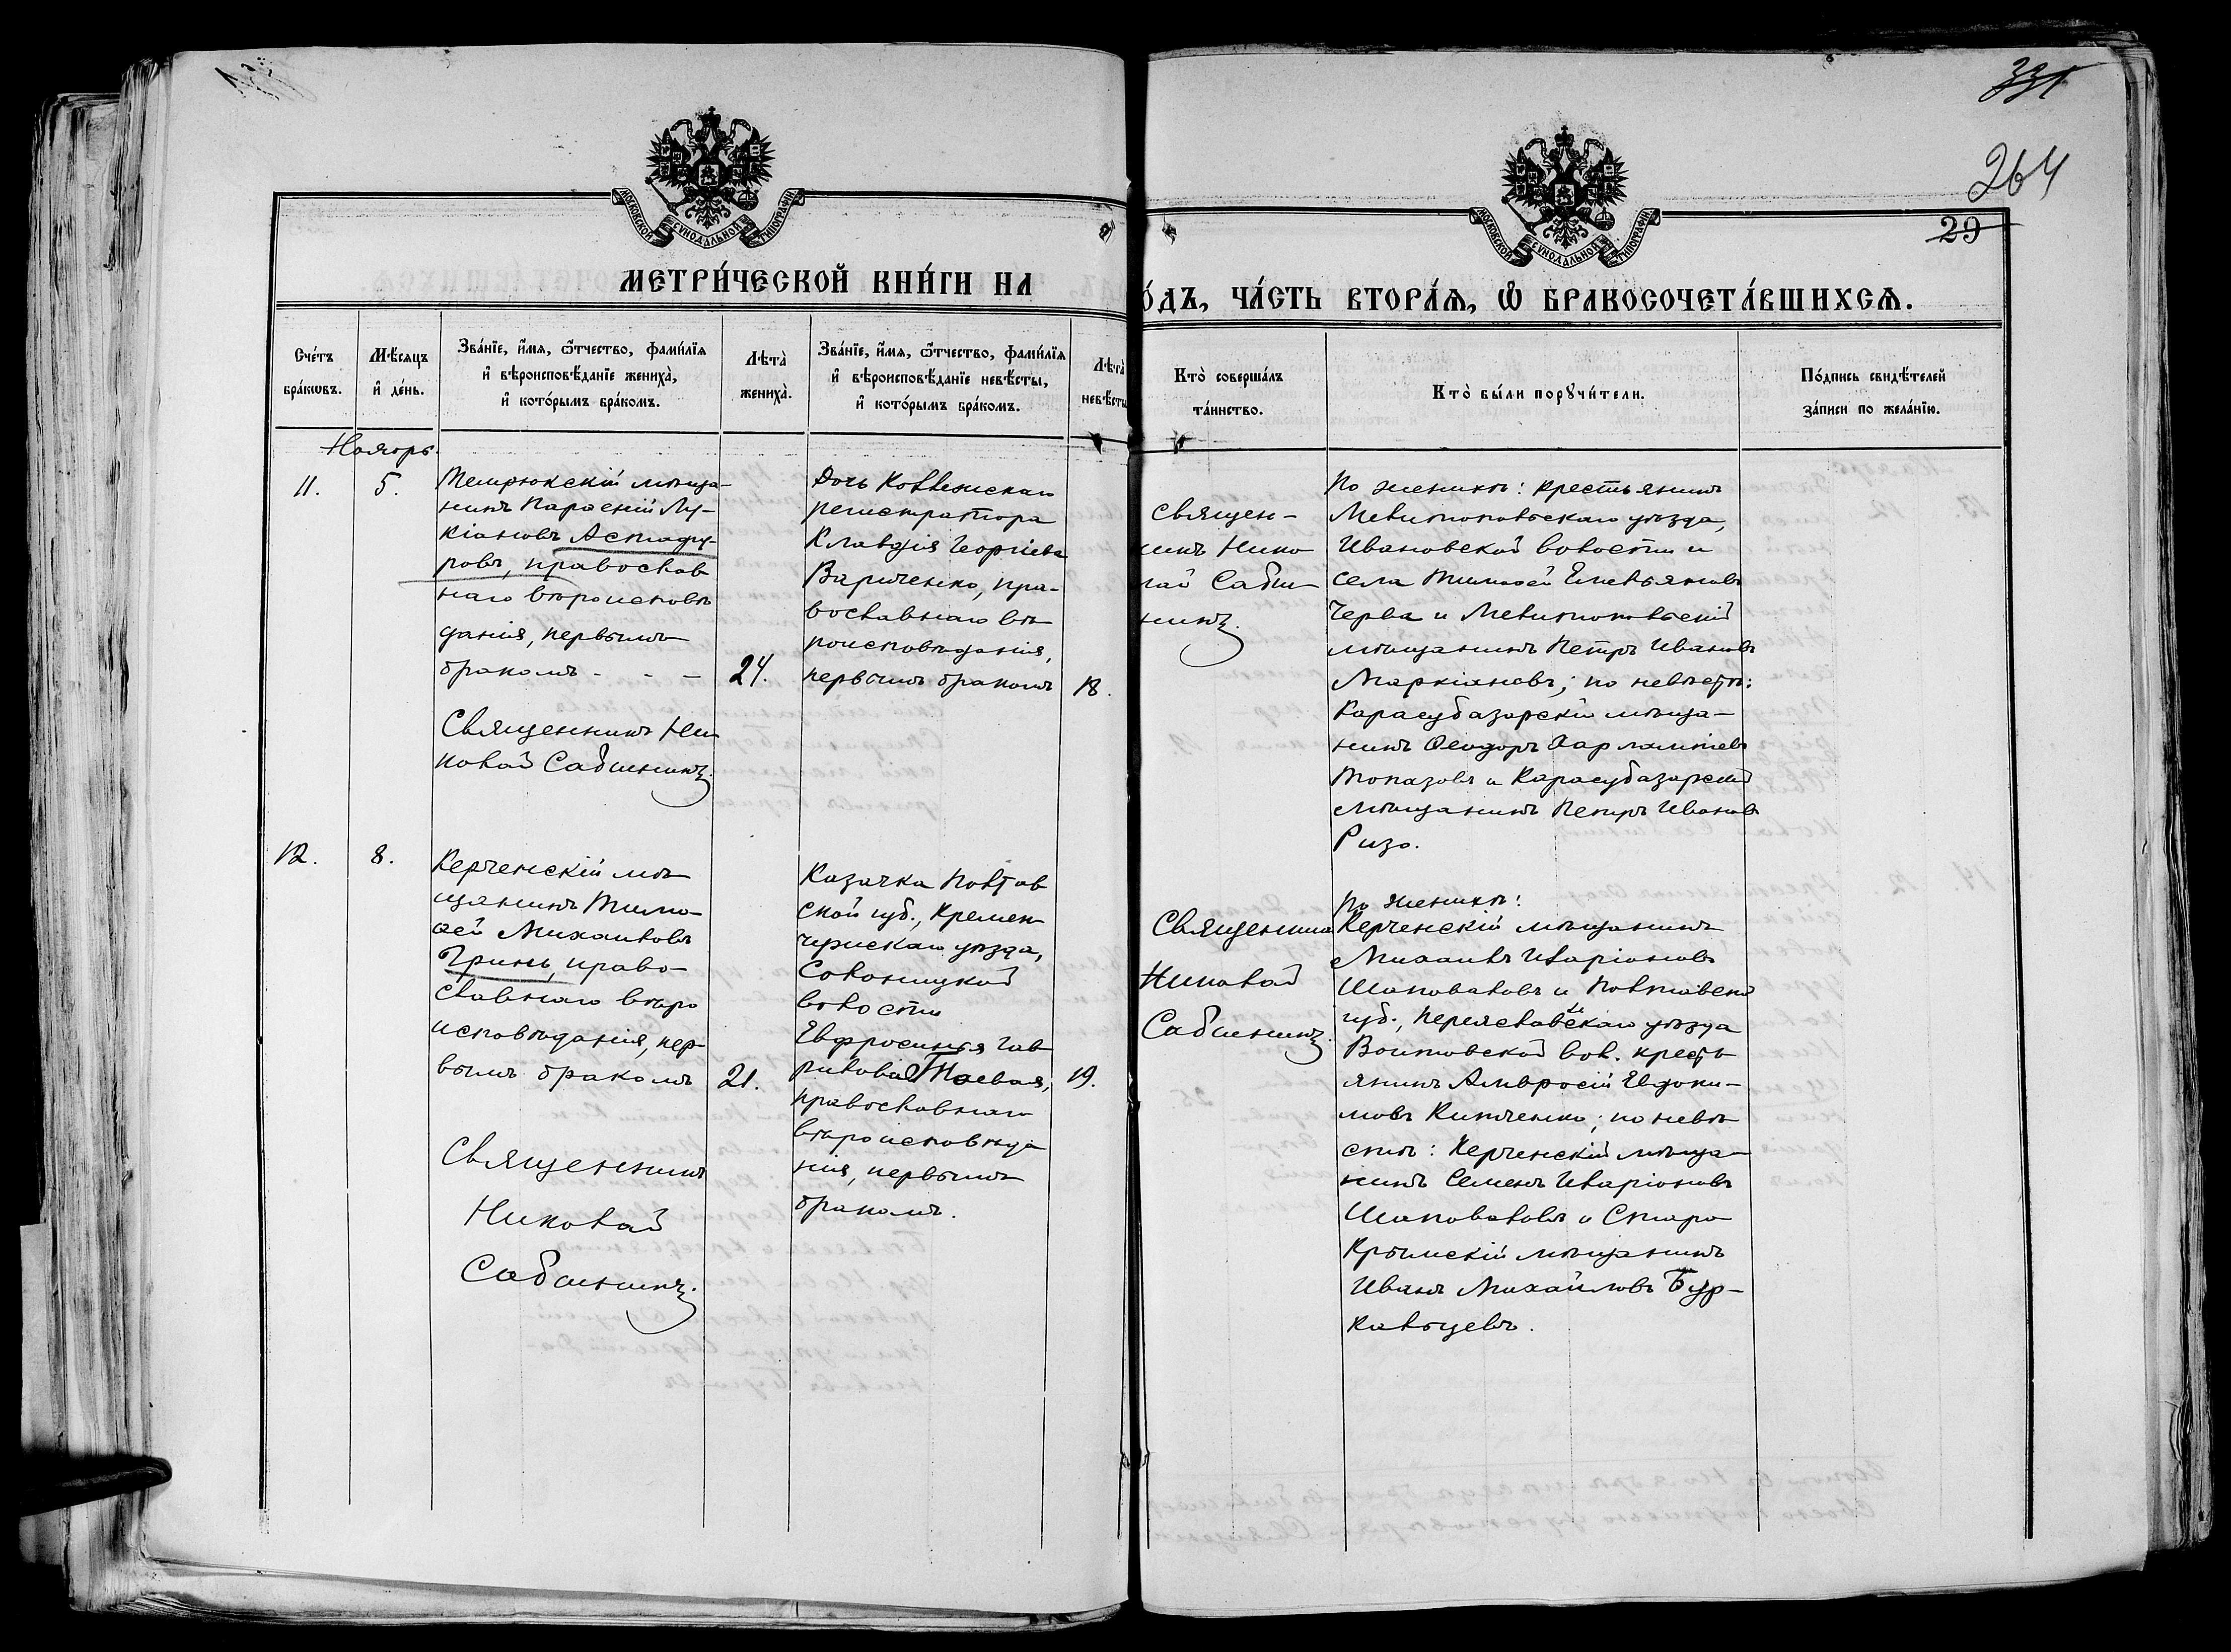 331
264
29
МОСКОВСКОЙ СѴНОДАЛЬНОЙ ТИПОГРАФІИ
МОСКОВСКОЙ СѴНОДАЛЬНОЙ ТИПОГРАФІИ
МЕТРИ́ЧЕСКОЙ КНИ́ГИ НА
О́ДЪ, ЧА́СТЬ ВТОРА́Ѧ, Ѽ БРАКОСОЧЕТА́ВШИХСѦ.
Сче́тъ
бра́кѡвъ.
Мѣ́сѧцъ
и҆ де́нь.
Зва́нїе, и҆́мѧ, ѻ҆́тчество, фами́лїѧ
и҆ вѣроисповѣ́данїе жениха̀,
и҆ кото́рымъ бра́комъ.
Лѣта̀
жениха̀.
Зва́нїе, и҆́мѧ, ѻ҆́тчество, фами́лїѧ
и҆ вѣроисповѣ́данїе невѣ́сты,
и҆ кото́рымъ бра́комъ.
Лѣта̀
невѣ́сты
Кто̀ соверша́лъ
та́инство.
Кто̀ бы́ли порꙋчи́тели.
По́дпись свидѣ́телей
за́писи по жела́нїю.
Ноябрь.
11.
5.
Темрюкскій мѣща-
нинъ Парѳеній Лу-
кіановъ Астафу-
ровъ, православ
наго вѣроисповѣ
данія, первымъ
бракомъ - - -
24.
Священникъ Ни
колай Сабининъ.
Дочь Коллежскаго
регистратора
Клавдія Георгіева
Варченко, пра-
вославнаго вѣ
роисповѣданія,
первымъ бракомъ
18.
Священ-
никъ Нико
лай Саби-
нинъ.
По женихѣ: крестьянинъ
Мелитопольскаго уѣзда,
Ивановской волости и
села Тимофей Емельяновъ
Черва и Мелитопольскій
мѣщанинъ Петръ Ивановъ
Маркіановъ; по невѣстѣ:
Карасубазарскій мѣща-
нинъ Ѳеодоръ Харлампіевъ
Топазовъ и Карасубазарскій
мѣщанинъ Петръ Ивановъ
Ризо.
12.
8.
Керченскій мѣ
щанинъ Тимо-
ѳей Михаиловъ
Гринь, право-
славнаго вѣро
исповѣданія, пер-
вымъ бракомъ
21.
Священникъ
Николай
Сабининъ.
Казачка Полтав
ской губ., Кремен
чугскаго уѣзда,
волости
Евфросинія Гав
рилова
православнаго
вѣроисповѣда
нія, первымъ
бракомъ.
19.
Священникъ
Николай
Сабининъ.
По женихѣ:
Керченскій мѣщанинъ
Михаилъ Иларіоновъ
Шаповаловъ и Полтавской
губ., Переяславскаго уѣзда
Войтовской вол. кресть
янинъ Амвросій Евдоки-
мовъ Китченко; по невѣ
стѣ: Керченскій мѣща-
нинъ Семенъ Иларіоновъ
Шаповаловъ и Старо
Крымскій мѣщанинъ
Иванъ Михайловъ Бур-
кальцевъ.